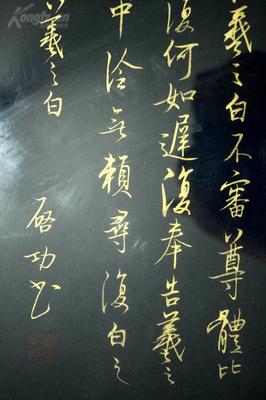 羲之白不審尊體比
復何如遲復奉告羲之
中冷無賴尋復白之
羲之白
啓功书